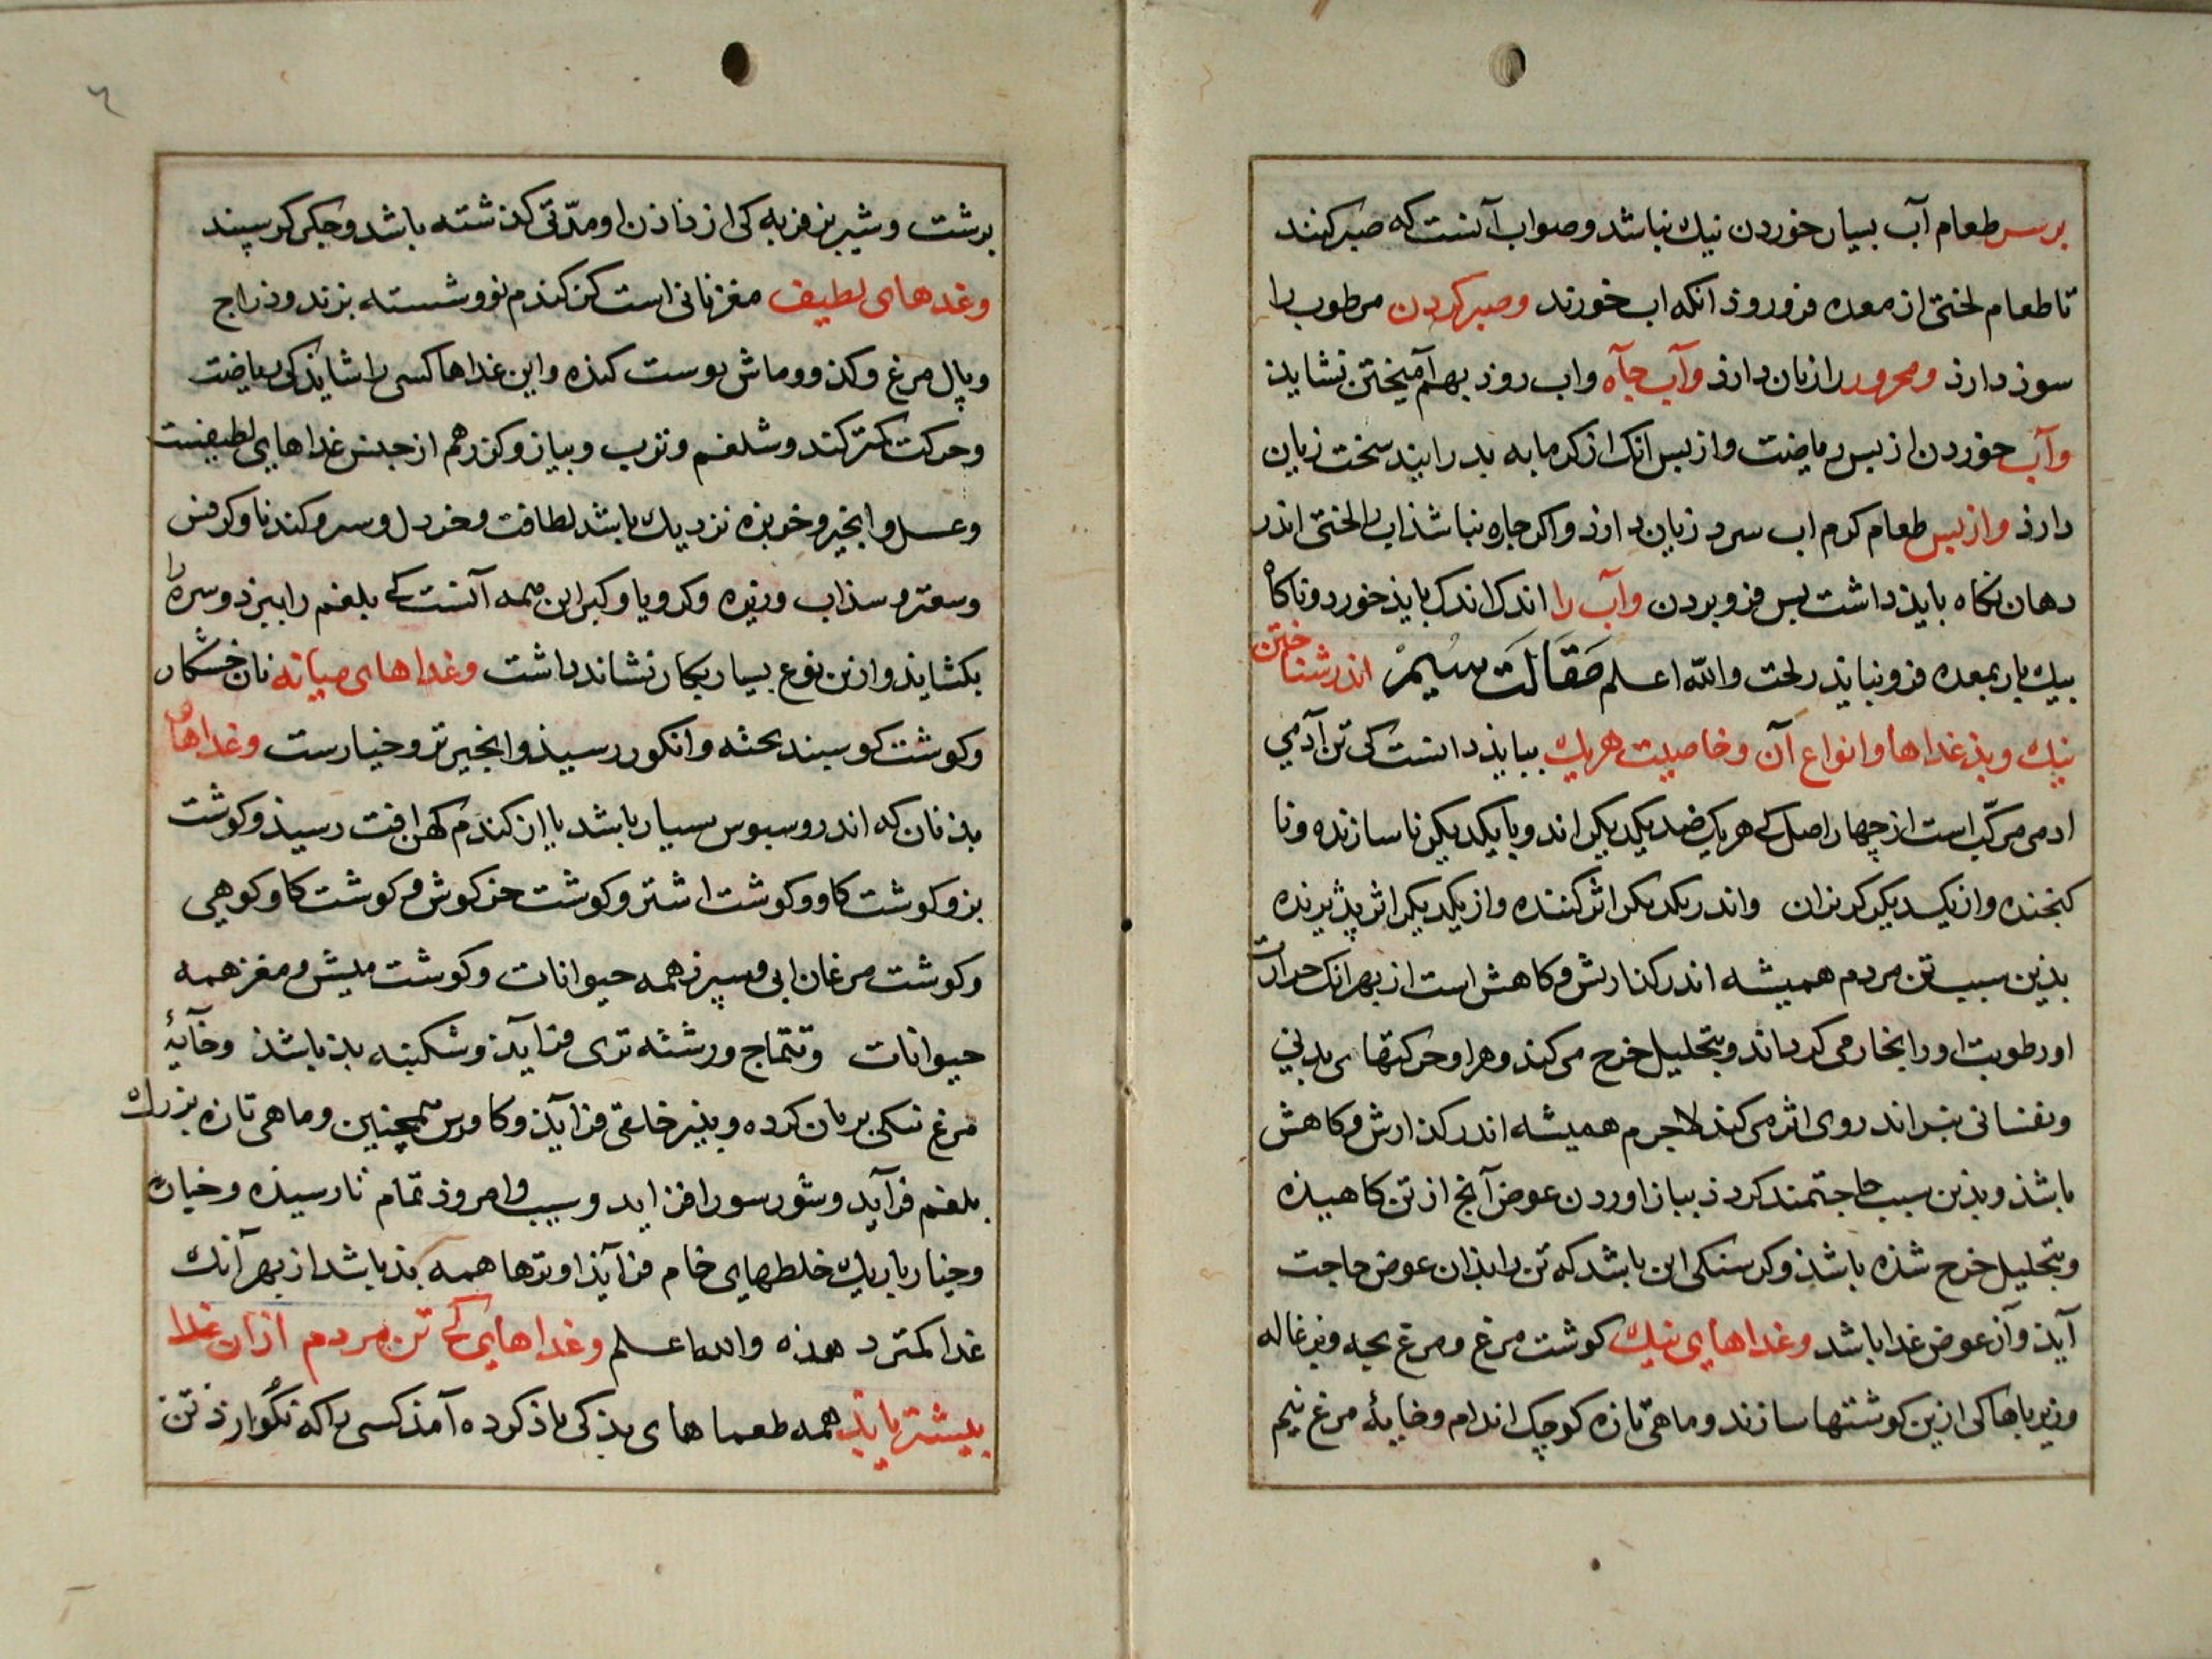 بر سر طعام آب بسیار خوردن نیك نباشد و صواب آنست که صبر کنند
تا طعام لختی از معده فرو روذ انکه اب خورند وصبر کردن مرطوب را
سوذ دارذ ومحرور را زیان دارذ وآب جآه واب روذ بهم آمیختن نشایذ
وآب خوردن از بس ریاضت واز بس انك از کرمابه بدر ایند سخت زیان
دارذ واز بس طعام کرم اب سرد زیان دارذ واکر چاره نباشذ اب را لختی اندر
دهان نکاه بایذ داشت بس فرو بردن وآب را اندك اندك بایذ خورد وناکاه
بیك بار بمعده فرو نبایذ ریخت والله اعلم مقالت سیم اندر شناختن
نیك وبذ غداها وانواع آن وخاصیت هریك ببایذ دانست کی تن آدمی
ادمی مرکب است از چهار اصل کی هریك ضد یکدیکر اند وبا یکدیکر ناسازنده ونا
کنجنده واز یکدیکر کریزان واندر یکدیکر اثر کننده واز یکدیکر اثر پذیرنده
بذین سبب تن مردم همیشه اندر کذارش وکاهش است از بهر انك حرارت
او رطوبت او را بخار می کرداند وبتحلیل خرج می کند وهوا وحرکتهای بدنی
ونفسانی نیز اندر وی اثر می کند لاجرم همیشه اندر کذارش وکاهش
باشذ وبذین سبب حاجتمند کردذ بباز اوردن عوض آنچ از تن کاهیذه
وبتحلیل خرج شذه باشذ وکرسنکی این باشد که تن را بذان عوض حاجت
آیذ وآن عوض غدا باشد وغداهای نیك کوشت مرغ ومرغ بچه وبزغاله
وزیرباها کی ازین کوشتها سازند وماهی تازه کوچك اندام وخایۀ مرغ نیم
برشت وشیر بز فربه کی از زاذن او مدتی کذشته باشد وجکر کوسپند
وغدهای لطیف مغز نانی است کز کندم نو وشسته بزند ودراج
وبال مرغ وکدو وماش بوست کنده واین غداها کسی را شایذ کی ریاضت
وحرکت کمتر کند وشلغم وترب وبیاز وکزر هم از جنس غداهای لطیفست
وعسل وانجیر وخربزه نزدیك باشد بلطافت وخردل وسیر وکندنا وکرفس
وسعتر وسذاب وزیره وکرویا وکبر این همه آنست کی بلغم را ببرذ وسره را
بکشایذ وازین نوع بسیار بکار نشاند داشت وغداهای میانه نان خشکار
وکوشت کوسبند بخته وانکور رسیذ وانجیر تر وخیارست وغداهای
بذ نان که اندرو سبوس بسیار باشد یا از کندم کهن افت رسیذ وکوشت
بز وکوشت کاو وکوشت اشتر وکوشت خرکوش وکوشت کاو کوهی
وکوشت مرغان ابی وسپرز همه حیوانات وکوشت میش ومغز همه
حیوانات وتتماج ورشته تری فزایذ وشکنبه بذ باشذ وخآیۀ
مرغ نمکی بریان کرده وبنیر خلقی فزآیذ وکاورس همچنین وماهی تازه بزرك
بلغم فزآید وشور سودا فزاید وسیب وامروذ تمام نارسیذه وخیار
وخیار باریك خلطهای خام فزآیذ او ترها همه بذ باشد از بهر آنك
غدا کمتر دهذه والله اعلم وغداهای کی تن مردم ازان غدا
بیشتر یابذ همه طعماهای بذ کی یاذ کرده آمذ کسی را که بکوارذ تن